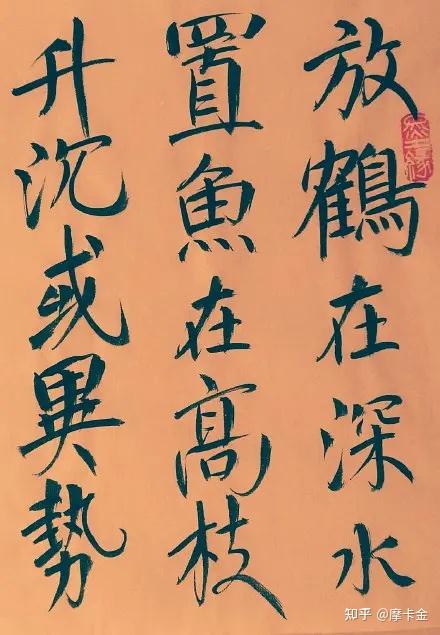 放鶴在深水
置魚在高枝
升沉或異勢
知乎 @摩卡金